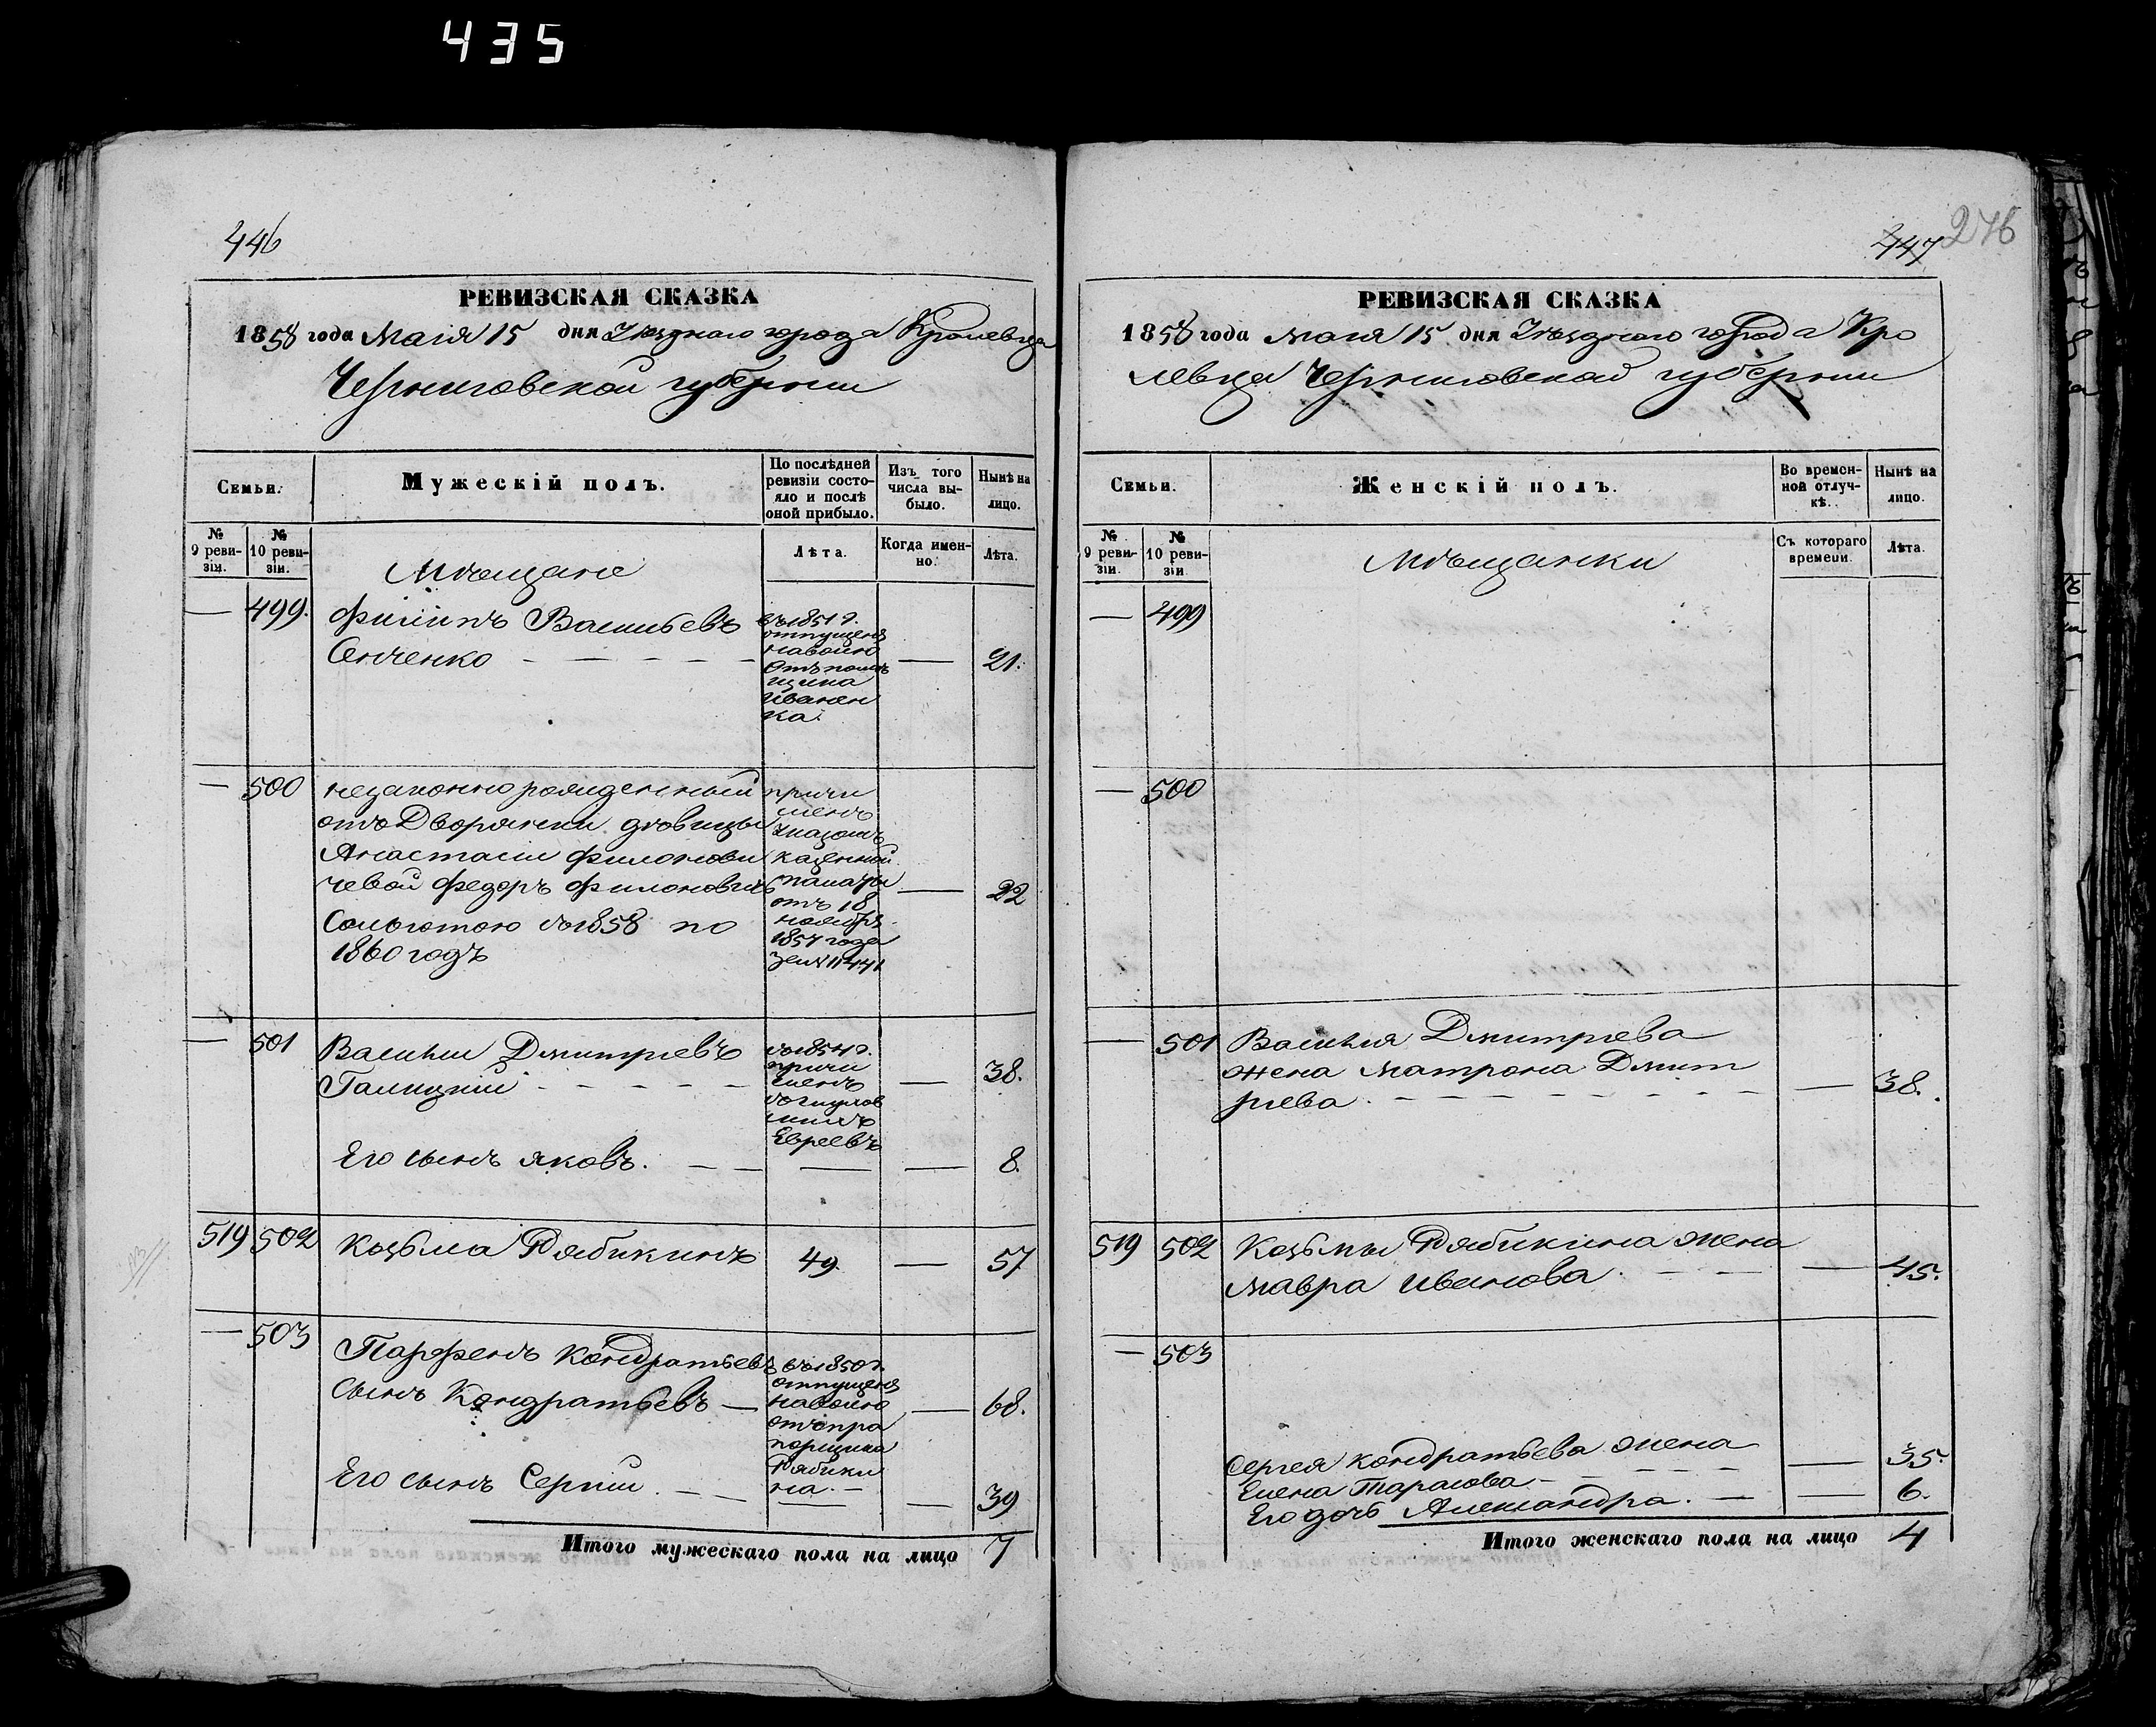 435
446
РЕВИЗСКАЯ СКАЗКА
1858 года Маія 15 дня Уѣзднаго города Кролевца
Черниговской губерніи
Семьи.
Мужескій полъ.
По послѣдней ревизіи состояло и послѣ оной прибыло.
Изъ того числа выбыло.
Нынѣ на лицо.
№ 9 ревизіи.
№ 10 ревизіи.
Лѣта.
Когда именно.
Лѣта.
Мѣщане
— 499. Филипъ Васильевъ
Сенченко — — — — — 21.
въ 1851 г.
отпущенъ
наволю
отъ помѣ
щика
Иванен
ка.
— 500 незаконнорожденный
отъ Дворянки дѣвицы
Анастасіи Филонови
чевой Федоръ Филоновичъ — 22
Сальготою съ 1858 по
1860 годъ
причи
сленъ
Указомъ
казенной
палаты
отъ 18
ноября
1857 года
за № 11441
— 501 Василій Дмитріевъ
Галицкій — — — — — — 38.
въ 1854 г.
причи
сленъ
Евреевъ
Его сынъ Яковъ. — — — — 8.
519 502 Козьма Рябикинъ 49. — 57
— 503 Парфенъ Кондратьевъ
сынъ Кондратьевъ — — 68.
въ 1850 г.
отпущенъ
наволю
отъ пра
порщика
Рябики
на. —
Его сынъ Сергій. — — — — 39
Итого мужескаго пола на лицо 7
447 276
РЕВИЗСКАЯ СКАЗКА
1858 года маія 15 дня Уѣзднаго города Кро
левца Черниговской губерніи
Семьи.
Женскій полъ.
Во временной отлучкѣ.
Нынѣ на лицо.
№ 9 ревизіи
№ 10 ревизіи
Съ котораго времени.
Лѣта.
Мѣщанки
— 499
— 500
— 501 Василія Дмитріева
жена Матрона Дмит
ріева. — — — — — — — — 38.
519 502 Козьмы Рябикина жена
Мавра Иванова. — — — 45.
— 503
Сергея Кондратьева жена
Елена Тарасова — — — — — 35.
Его дочь Александра. — — 6.
Итого женскаго пола на лицо 4